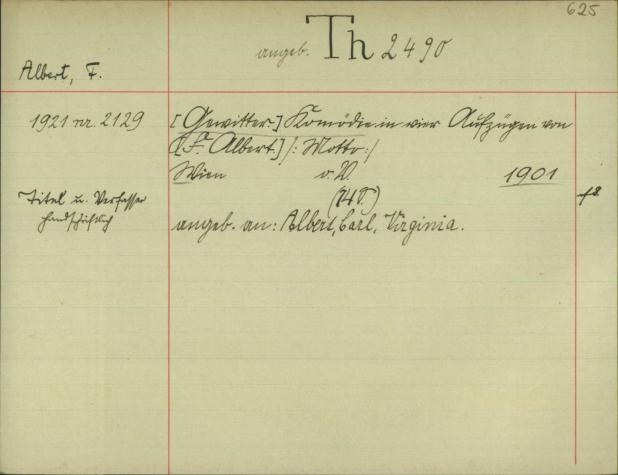 625
angeb. Th 2490
Albert, F.
1921 nr. 2129
[Gewitter.] Komödie in vier Aufzügen von
[F. Albert.] /: Motto :/
Wien o. V 1901
(74 S.)
f8
Titel u. Verfasser
handschriftlich
angeb. an: Albert, Carl, Virginia.